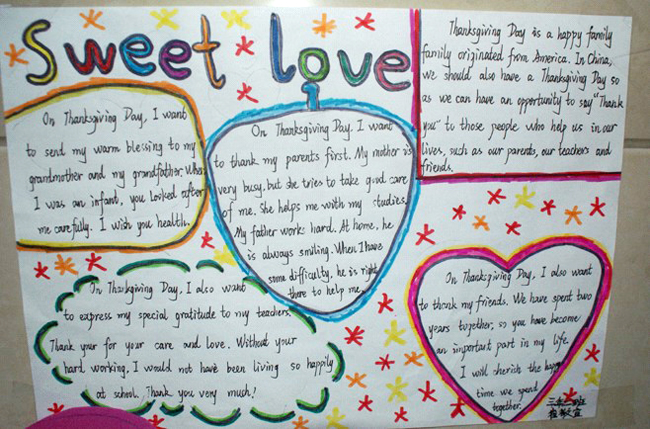 Sweet love
On Thanksgiving Day, I want
to send my warm blessing to my
grandmother and my grandfather. When
I was an infant, you looked after
me carefully. I wish you health.
On Thanksgiving Day, I want
to thank my parents first. My mother is
very busy, but she tries to take good care
of me. She helps me with my studies.
My father works hard. At home, he
is always smiling. When I have
some difficulty, he is right
there to help me.
Thanksgiving Day is a happy family
family originated from America. In China,
we should also have a Thanksgiving Day so
as we can have an opportunity to say "Thank
you" to those people who help us in our
lives, such as our parents, our teachers and
friends.
On Thanksgiving Day, I also want
to express my special gratitude to my teachers.
Thank your for your care and love. Without your
hard working, I would not have been living so happily
at school. Thank you very much!
On Thanksgiving Day, I also want
to thank my friends. We have spent two
years together, so you have become
an important part in my life.
I will cherish the happy
time we spend
together.